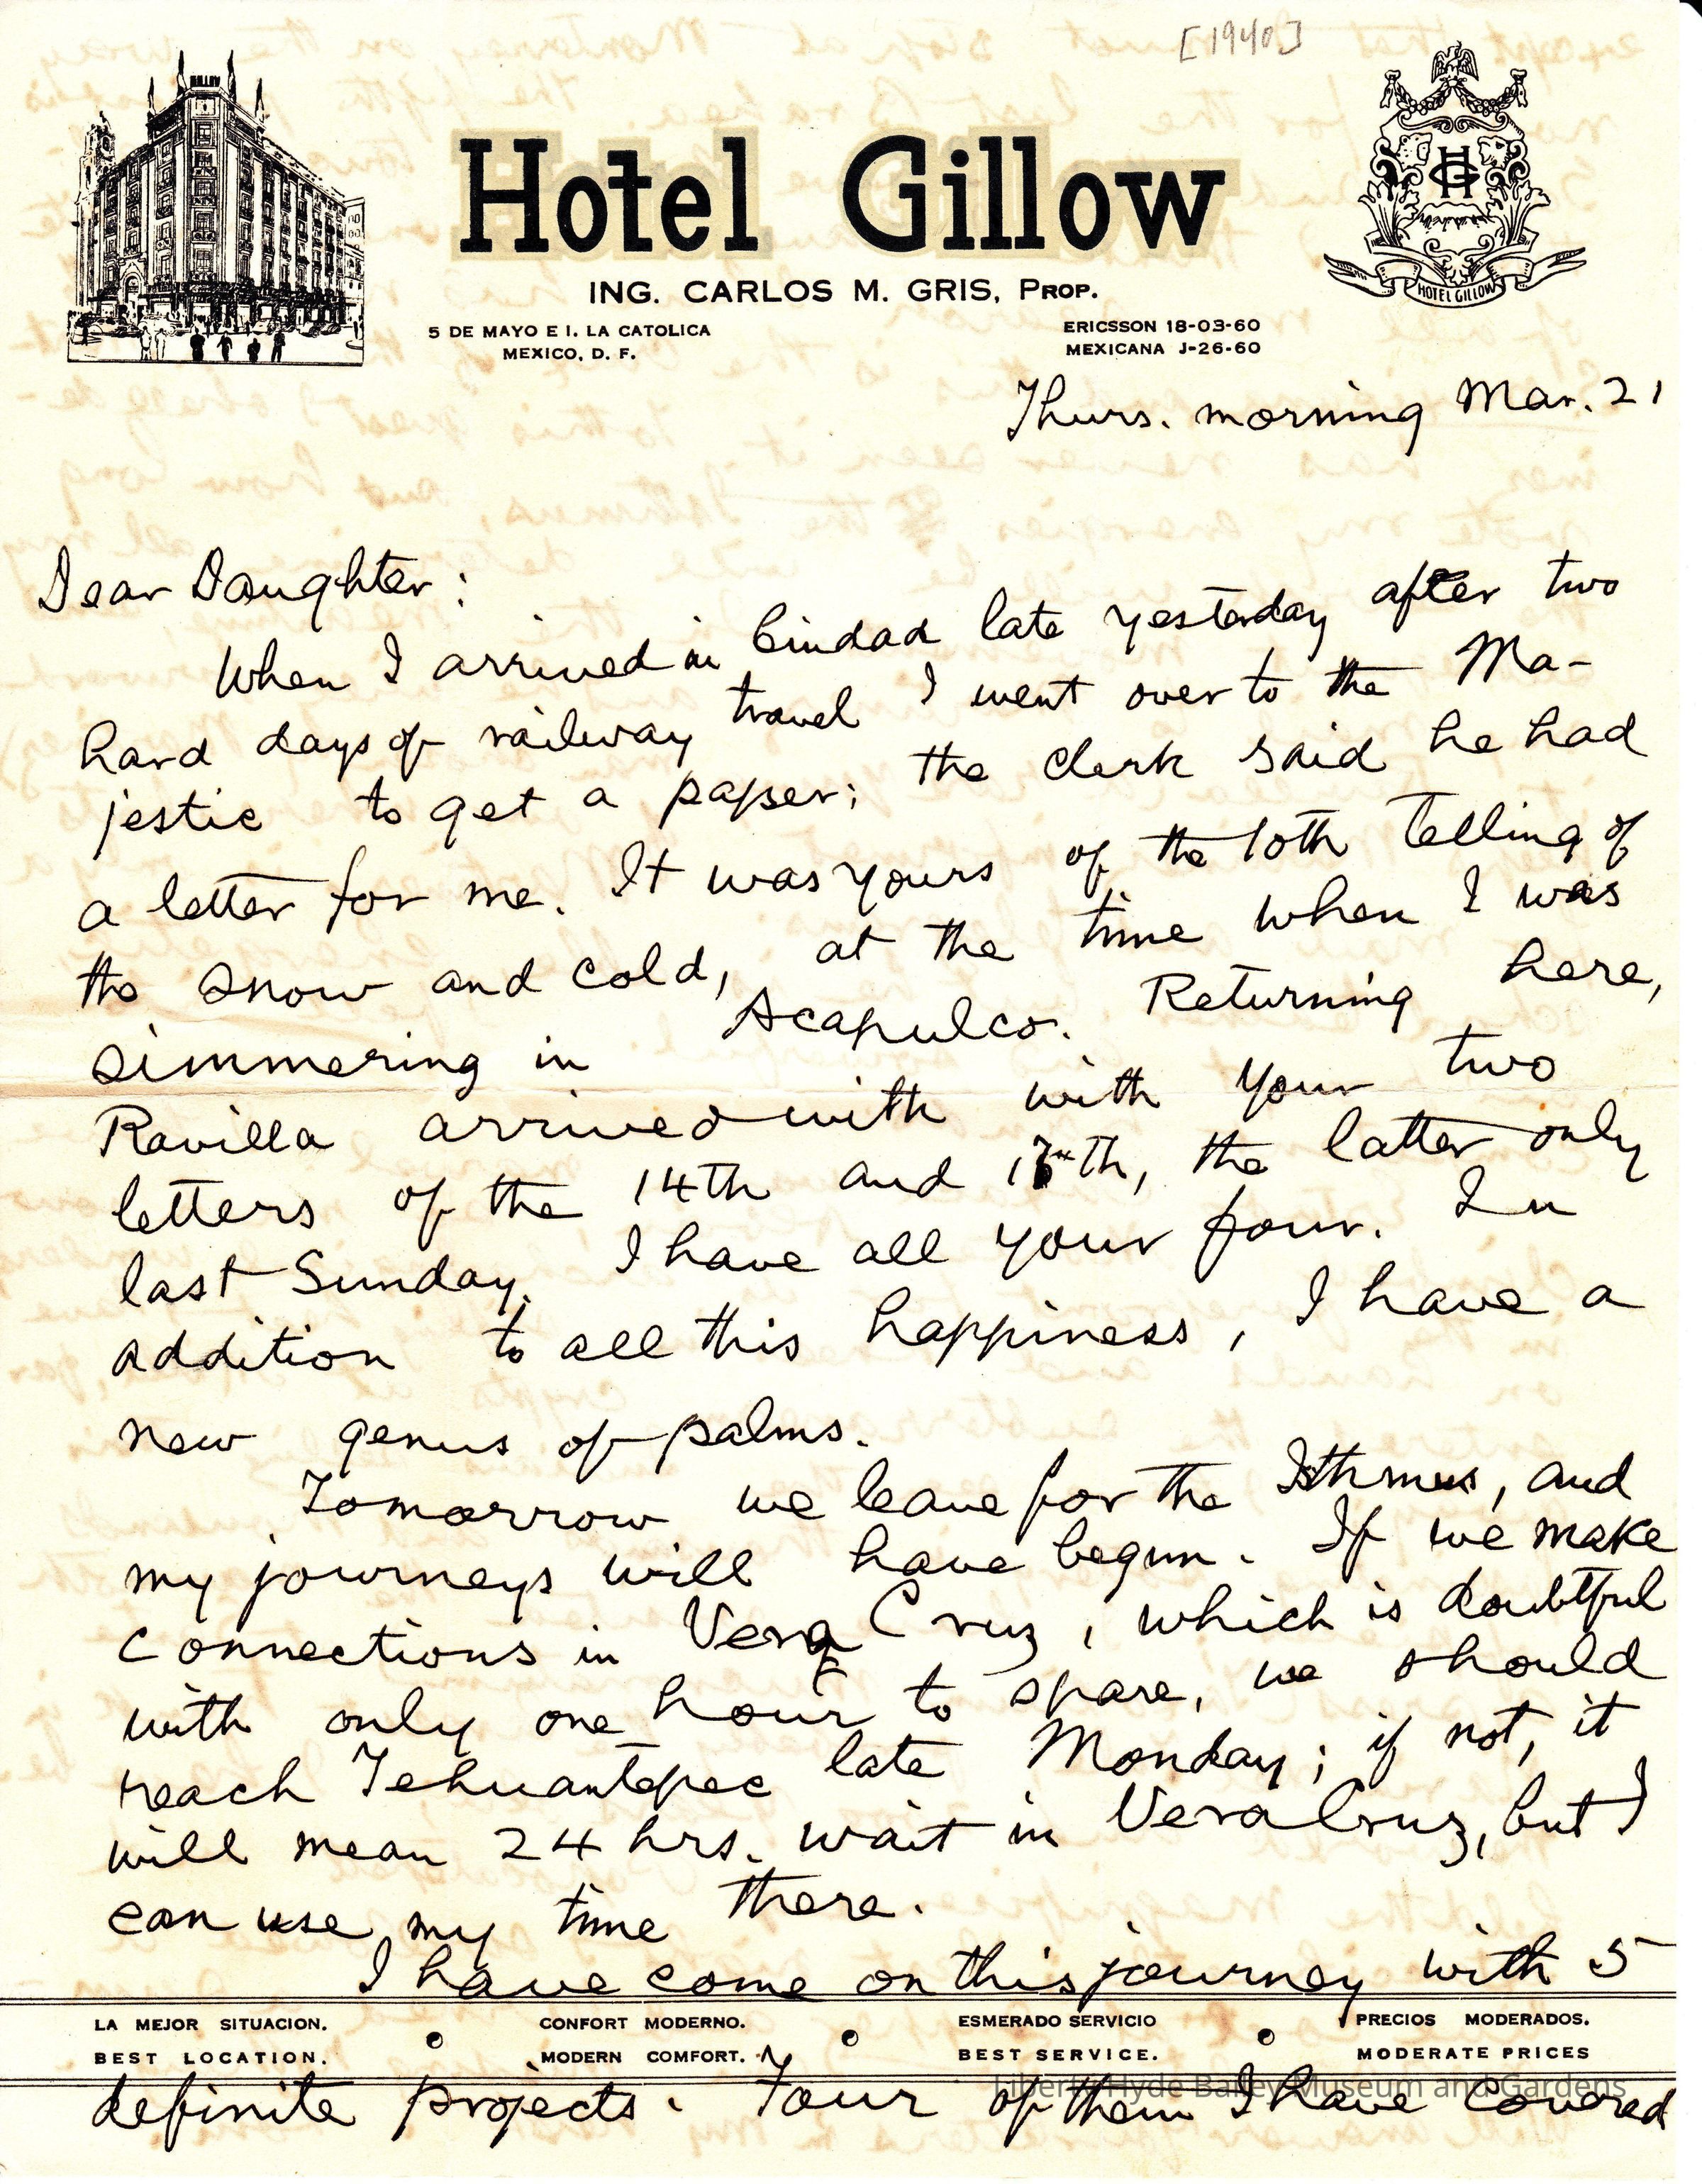 [1940]
GILLOW
Hotel Gillow
HG
HOTEL GILLOW
ING. CARLOS M. GRIS, PROP.
5 DE MAYO E I. LA CATOLICA
MEXICO, D. F.
ERICSSON 18-03-60
MEXICANA J-26-60
Thurs. morning Mar. 21
Dear Daughter:
When I arrived in Ciudad late yesterday after two
hard days of railway travel I went over to the Ma-
jestic to get a paper; the clerk said he had
a letter for me. It was yours of the 10th telling of
the snow and cold, at the time when I was
simmering in Acapulco. Returning here,
Ravilla arrived with with your two
letters of the 14th and 17th, the latter only
last Sunday. I have all your four. In
addition to all this happiness, I have a
new genus of palms.
Tomorrow we leave for the Isthmus, and
my journeys will have begun. If we make
connections in Vera Cruz, which is doubtful
with only one hour to spare, we should
reach Tehuantepec late Monday; if not, it
will mean 24 hrs. wait in Vera Cruz, but I
can use my time there.
I have come on this journey with 5
LA MEJOR SITUACION.
BEST LOCATION.
CONFORT MODERNO.
MODERN COMFORT.
ESMERADO SERVICIO
BEST SERVICE.
PRECIOS MODERADOS.
MODERATE PRICES
Liberty Hyde Bailey Museum and Gardens
definite projects. Four of them I have covered